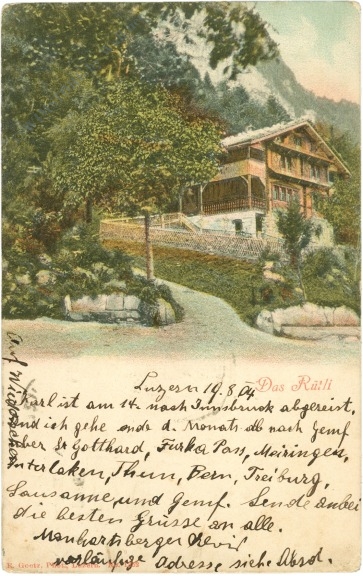 Das Rütli
Luzern 19.8.04
Karl ist am 14. nach Innsbruck abgereist,
und ich gehe ende d. Monats ab nach Genf
über St Gotthard, Furka Pass, Meiringen,
Interlaken, Thun, Bern, Freiburg,
Lausanne und Genf. Sende anbei
die besten Grüsse an alle.
vorläufige Adresse siehe Absd.
auf Wiedersehen
E. Goetz, Phot., Luzern.